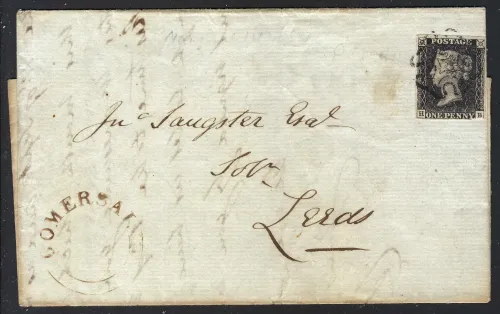 POSTAGE
ONE PENNY
Jnº Sangster Esqr
Solr
Leeds
GOMERSAL